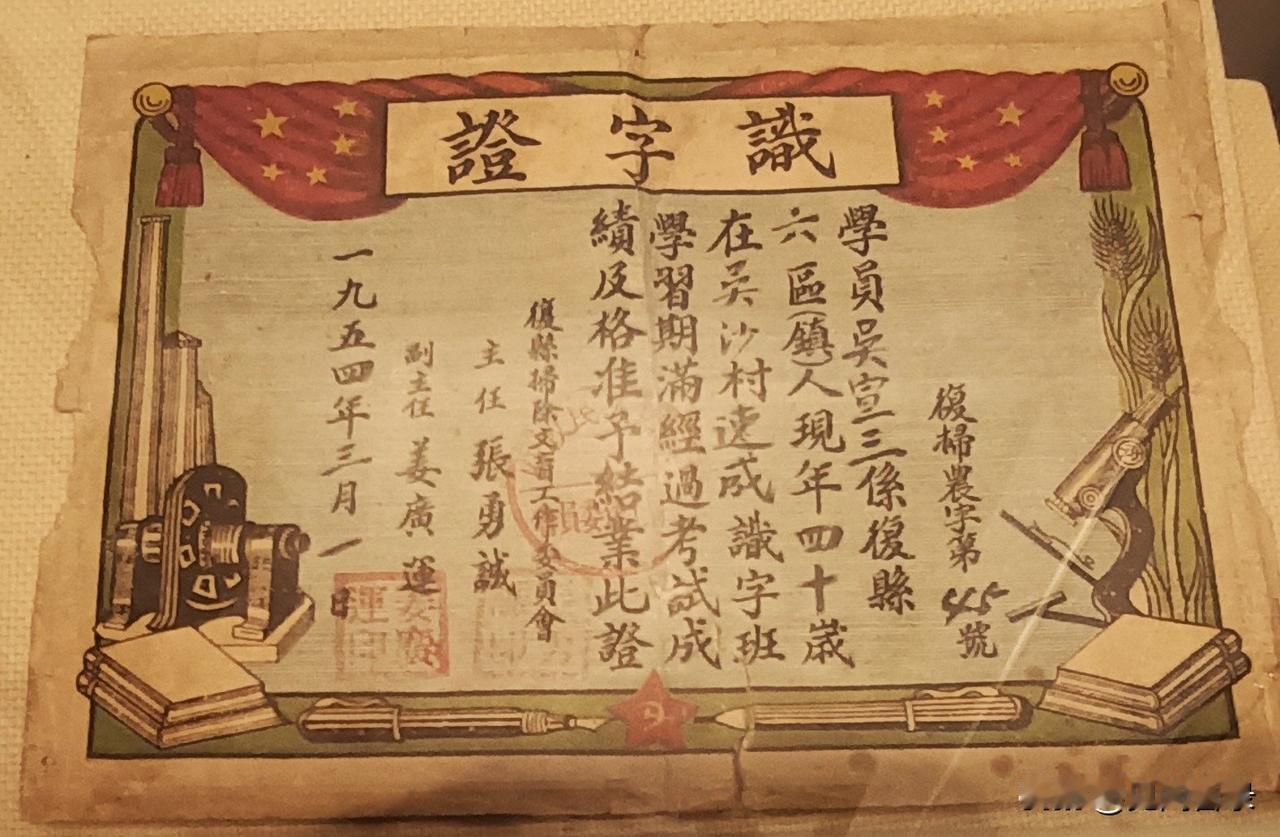 識字證
復掃農字第545號
學員吳宣三係復縣
六區(鎮)人現年四十歲
在吳沙村速成識字班
學習期滿經過考試成
績及格准予結業此證
復縣掃除文盲工作委員會
主任 張勇誠
副主任 姜廣運
一九五四年三月一日